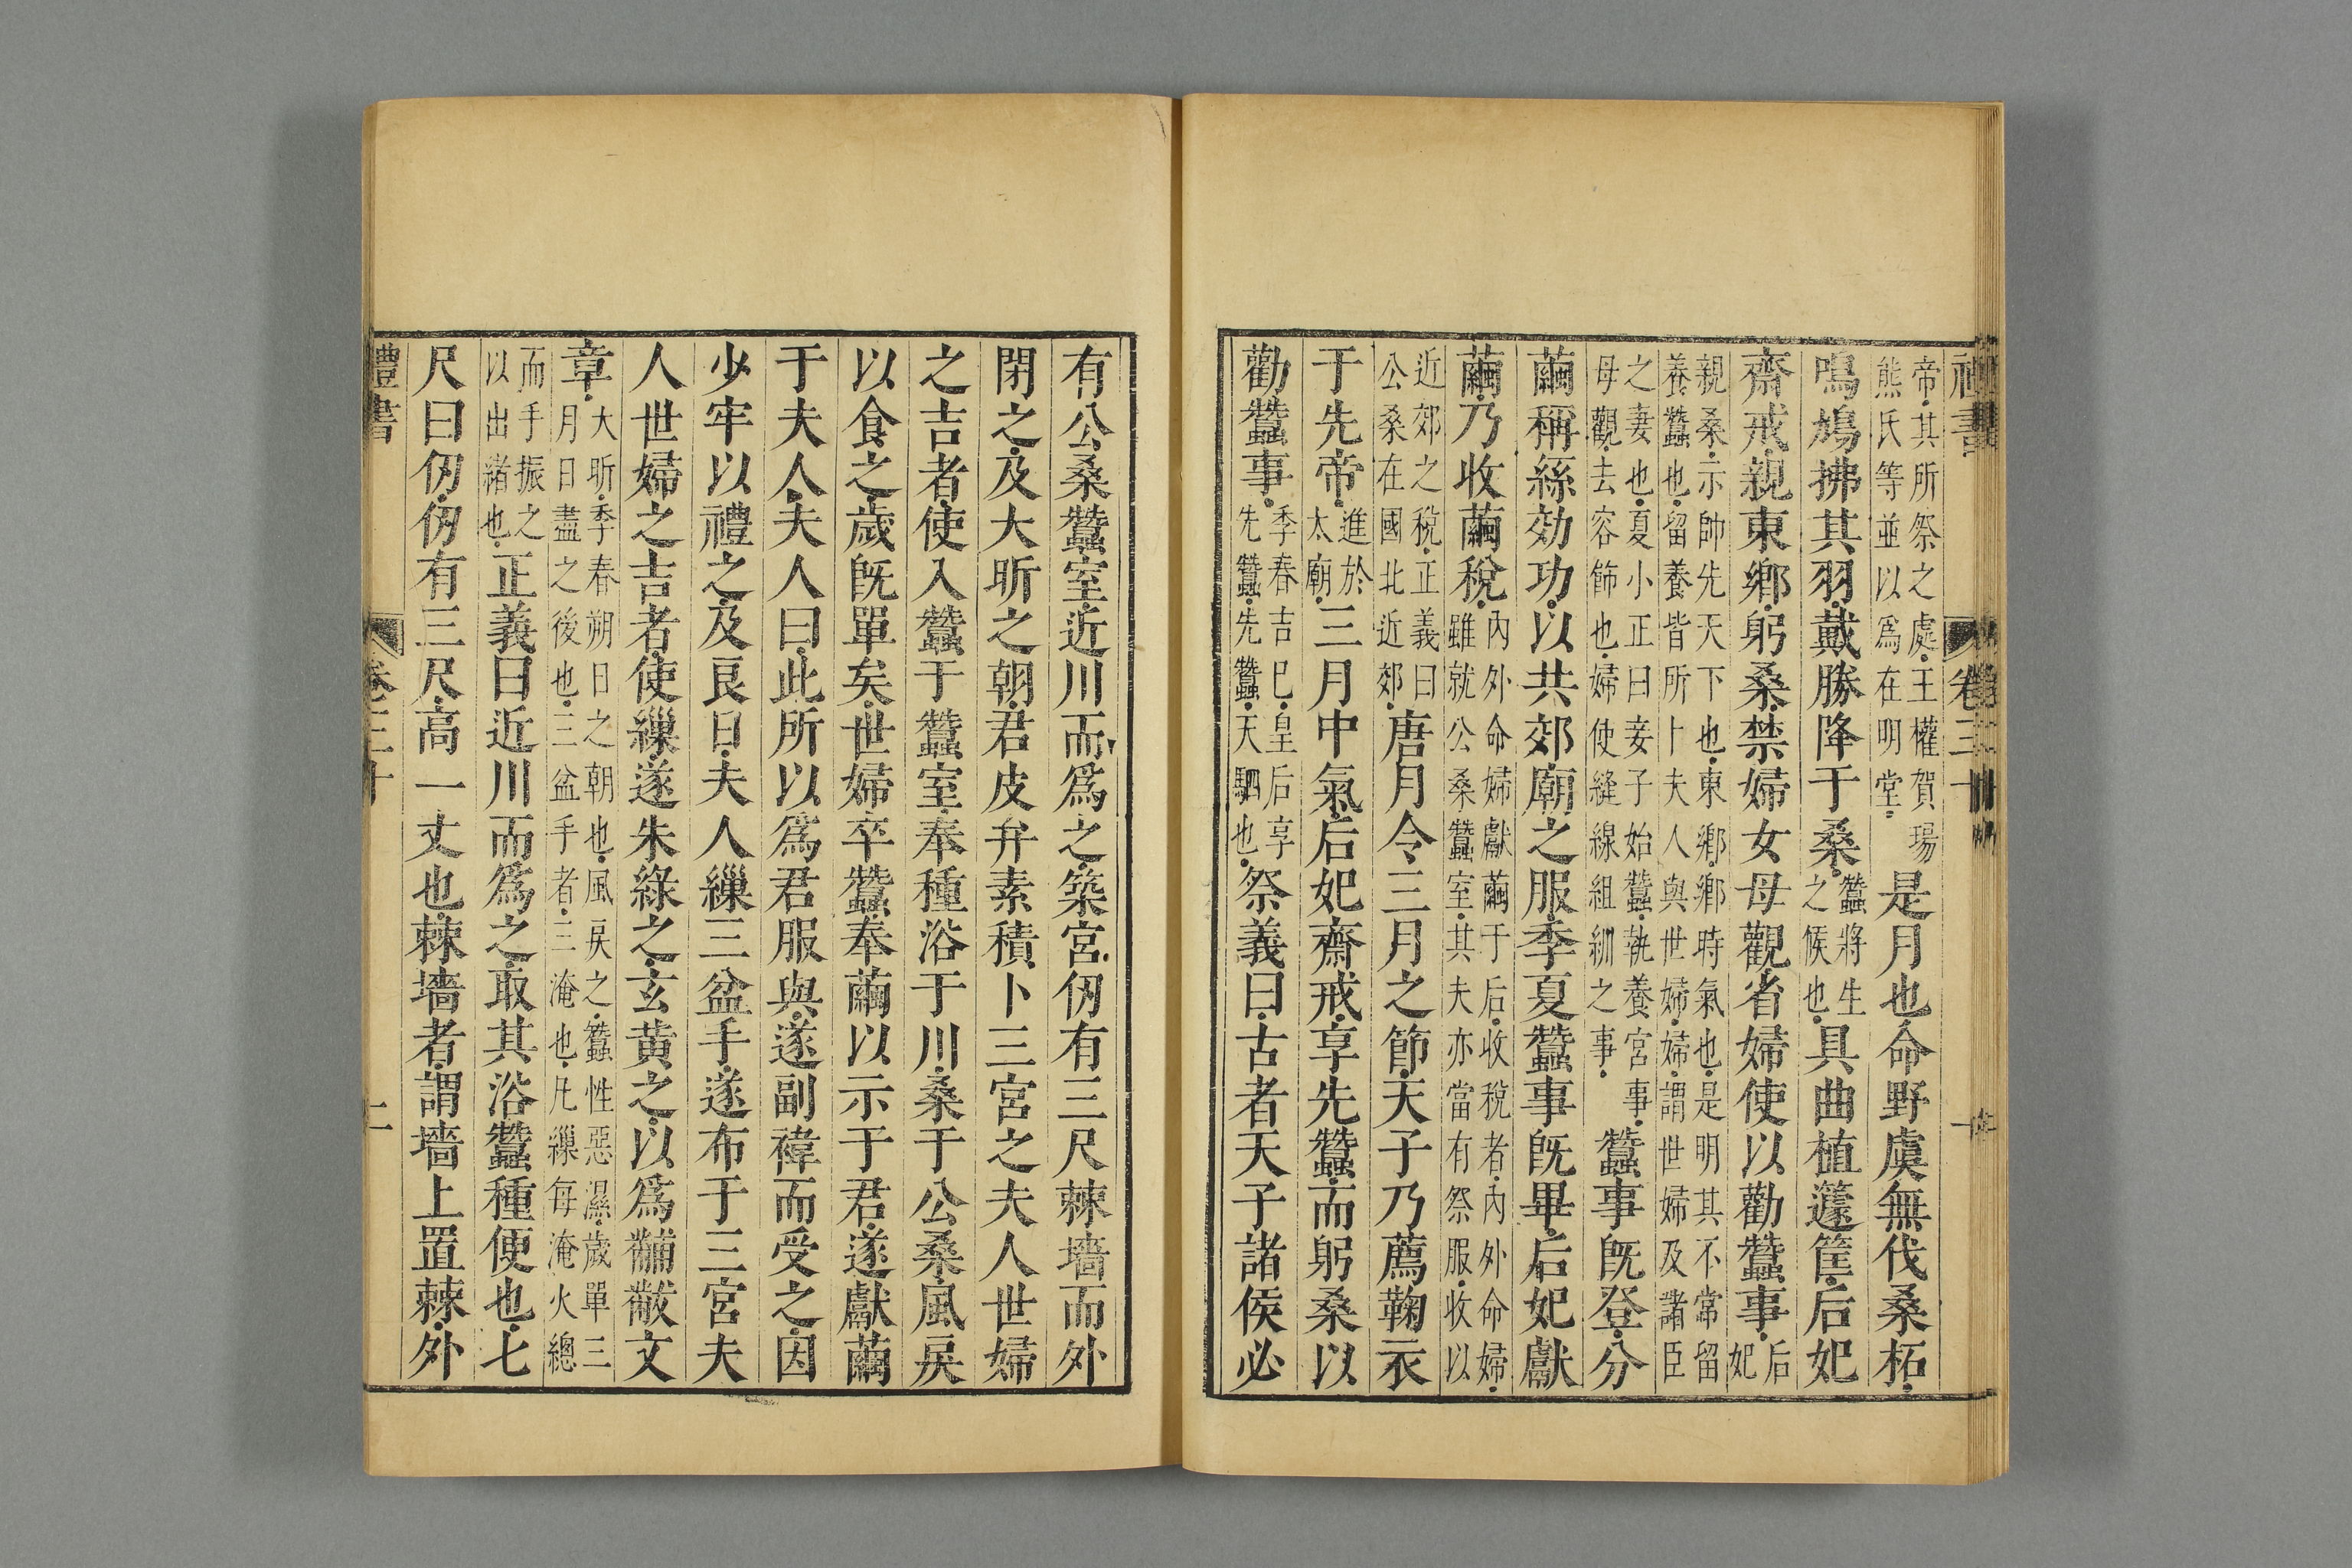 禮書 卷三十
帝其所祭之處王權賀瑒
熊氏等並以爲在明堂
是月也命野虞無伐桑柘
鳴鳩拂其羽戴勝降于桑
蠶將生
之候也
具曲植籧筐后妃
齋戒親東鄉躬桑禁婦女母觀省婦使以勸蠶事
后
妃
親桑示帥先天下也東鄉鄉時氣也是明其不常留
養蠶也留養皆所卜夫人與世婦婦謂世婦及諸臣
之妻也夏小正曰妾子始蠶執養宮事
母觀去容飾也婦使縫線組紃之事
蠶事旣登分
繭稱絲効功以共郊廟之服季夏蠶事旣畢后妃獻
繭乃收繭稅
內外命婦獻繭于后收稅者內外命婦
雖就公桑蠶室其夫亦當有祭服收以
近郊之稅正義曰
公桑在國北近郊
唐月令三月之節天子乃薦鞠衣
于先帝
進於
太廟
三月中氣后妃齋戒享先蠶而躬桑以
勸蠶事
季春吉巳皇后享
先蠶先蠶天駟也
祭義曰古者天子諸侯必
有公桑蠶室近川而爲之築宮仞有三尺棘墻而外
閉之及大昕之朝君皮弁素積卜三宮之夫人世婦
之吉者使入蠶于蠶室奉種浴于川桑于公桑風戾
以食之歲旣單矣世婦卒蠶奉繭以示于君遂獻繭
于夫人夫人曰此所以爲君服與遂副褘而受之因
少牢以禮之及良日夫人繅三盆手遂布于三宮夫
人世婦之吉者使繅遂朱綠之玄黃之以爲黼黻文
章
大昕季春朔日之朝也風戾之蠶性惡濕歲單三
月日盡之後也三盆手者三淹也凡繅每淹火總
而手振之
以出緒也
正義曰近川而爲之取其浴蠶種便也七
尺曰仞仞有三尺高一丈也棘墻者謂墻上置棘外
禮書 卷三十 二